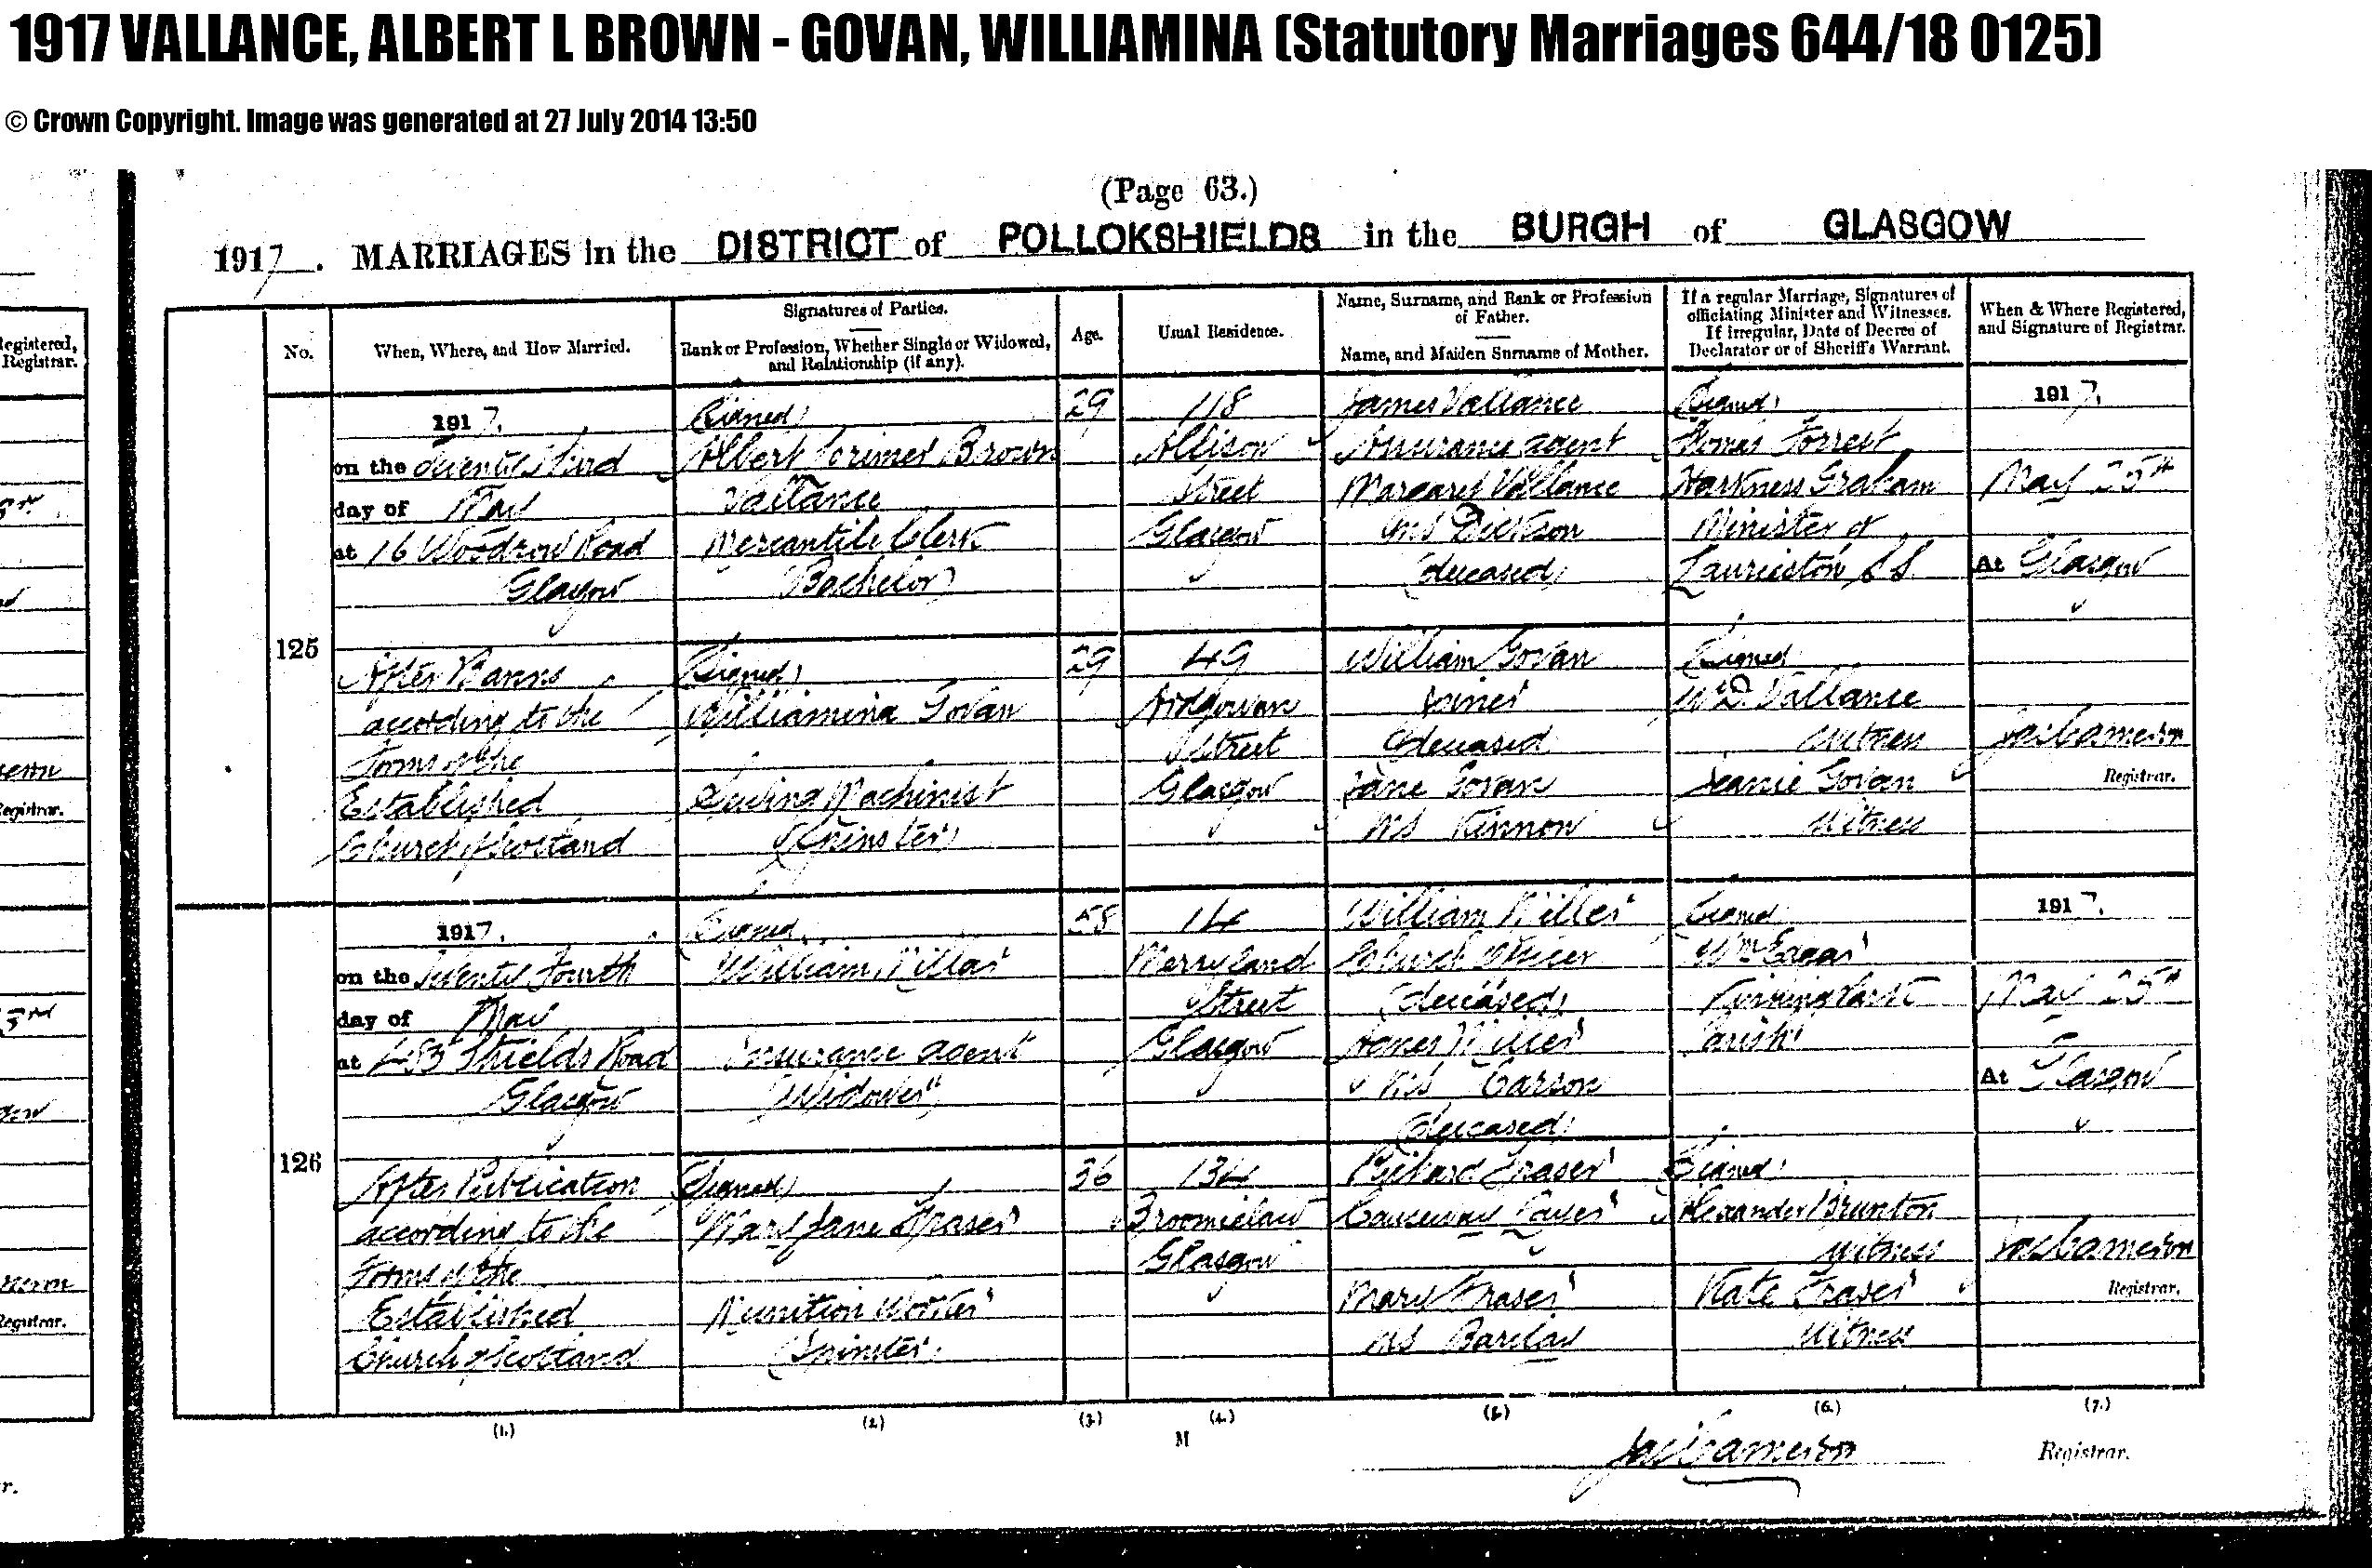 1917 VALLANCE, ALBERT L BROWN - GOVAN, WILLIAMINA (Statutory Marriages 644/18 0125)
© Crown Copyright. Image was generated at 27 July 2014 13:50
(Page 63.)
1917. MARRIAGES in the DISTRICT of POLLOKSHIELDS in the BURGH of GLASGOW
Registered,
Registrar.
No.
When, Where, and How Married.
Signatures of Parties.
Rank or Profession, Whether Single or Widowed,
and Relationship (if any).
Age.
Usual Residence.
Name, Surname, and Rank or Profession
of Father.
Name, and Maiden Surname of Mother.
If a regular Marriage, Signatures of
officiating Minister and Witnesses.
If irregular, Date of Decree of
Declarator or of Sheriff's Warrant.
When & Where Registered,
and Signature of Registrar.
125
1917.
on the Twenty Third
day of May
at 16 Woodrow Road
Glasgow
After Banns
according to the
Forms of the
Established
Church of Scotland
(Signed)
Albert Lorimer Brown
Vallance
Mercantile Clerk
(Bachelor)
(Signed)
Williamina Govan
Machinist
(Spinster)
29
29
118
Allison
Street
Glasgow
49
Ardgowan
Street
Glasgow
James Vallance
Assurance agent
Margaret Vallance
ms Dickson
(deceased)
William Govan
(deceased)
Jane Govan
ms Kinnon
(Signed)
Thomas Forrest
Harkness Graham
Minister of
Laurieston
(Signed)
Wm D. Vallance
witness
Jeanie Govan
witness
1917.
May 25th
At Glasgow
Jas Cameron
Registrar.
126
1917.
on the Twenty Fourth
day of May
at 483 Shields Road
Glasgow
After Publication
according to the
Forms of the
Established
Church of Scotland
(Signed)
William Millar
Insurance agent
(Widower)
(Signed)
Mary Jane Fraser
Munition Worker
(Spinster)
58
36
14
Merryland
Street
Glasgow
134
Broomielaw
Glasgow
William Miller
Church Officer
(deceased)
Agnes Miller
ms Carson
(deceased)
Richard Fraser
Causeway Layer
Mary Fraser
ms Barclay
(Signed)
Wm Edgar
Kinning Park
Parish
(Signed)
Alexander Brunton
witness
Kate Fraser
witness
1917.
May 25th
At Glasgow
Jas Cameron
Registrar.
(1.) (2.) (3.) (4.) (5.) (6.) (7.)
M
Jas Cameron Registrar.